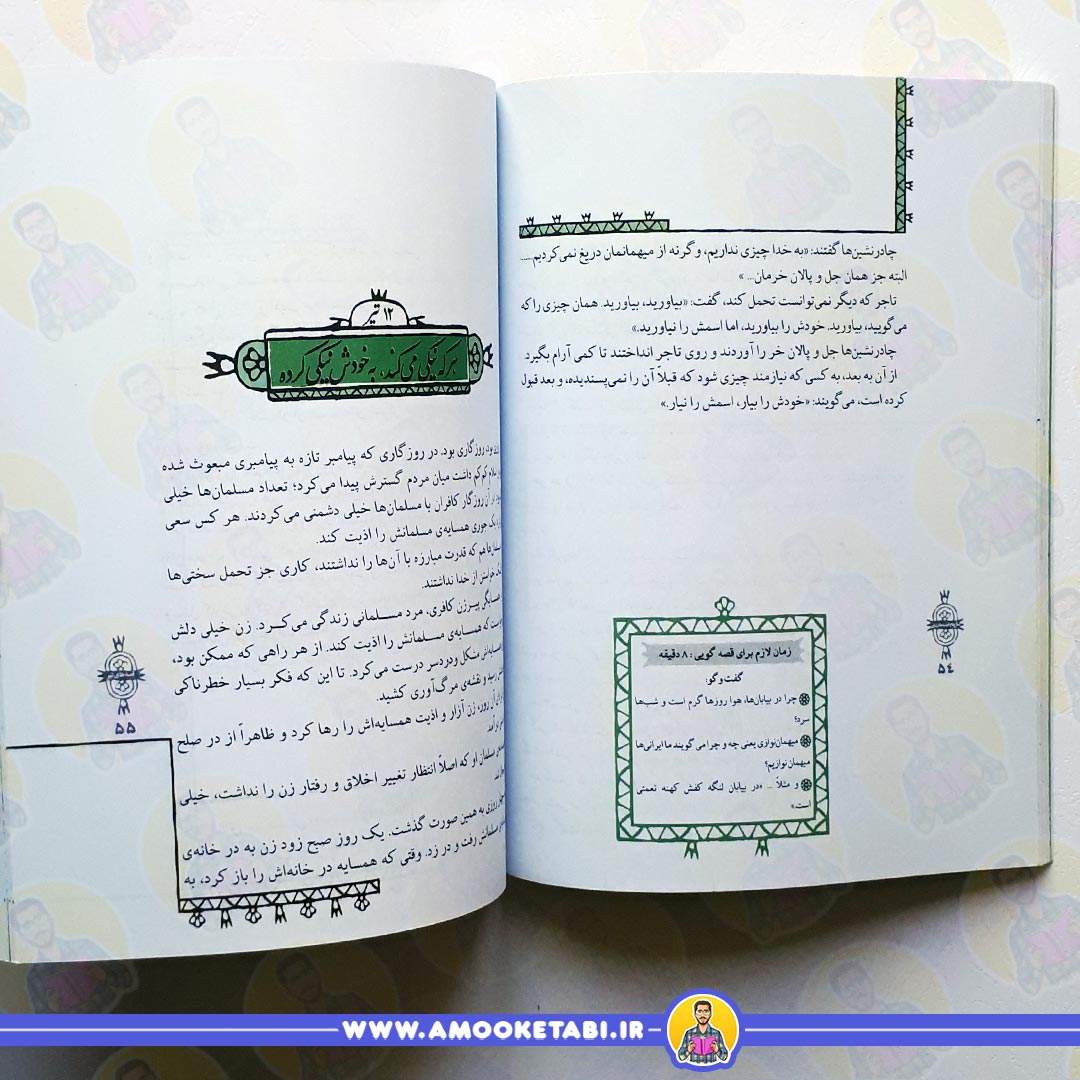 چادرنشین‌ها گفتند: «به خدا چیزی نداریم، وگرنه از میهمانمان دریغ نمی‌کردیم.....
البته جز همان جل و پالان خرمان... »
تاجر که دیگر نمی‌توانست تحمل کند، گفت: «بیاورید، بیاورید. همان چیزی را که
می‌گویید، بیاورید. خودش را بیاورید، اما اسمش را نیاورید.»
چادرنشین‌ها جل و پالان خر را آوردند و روی تاجر انداختند تا کمی آرام بگیرد.
از آن به بعد، به کسی که نیازمند چیزی شود که قبلاً آن را نمی‌پسندیده، و بعد قبول
کرده است، می‌گویند: «خودش را بیار، اسمش را نیار.»
زمان لازم برای قصه گویی: ۸ دقیقه
گفت‌وگو:
چرا در بیابان‌ها، هوا روزها گرم است و شب‌ها
سرد؟
میهمان‌نوازی یعنی چه و چرا می گویند ما ایرانی‌ها
میهمان نوازیم؟
و مثلاً ... «در بیابان لنگه کفش کهنه نعمتی
است.»
۵۴
۱۲ تیر
هر که نیکی می‌کند، به خودش نیکی کرده
روزگاری بود. در روزگاری که پیامبر تازه به پیامبری مبعوث شده
کم‌کم داشت میان مردم گسترش پیدا می‌کرد؛ تعداد مسلمان‌ها خیلی
آن روزگار کافران با مسلمان‌ها خیلی دشمنی می‌کردند. هر کس سعی
یک جوری همسایه‌ی مسلمانش را اذیت کند.
هم که قدرت مبارزه با آن‌ها را نداشتند، کاری جز تحمل سختی‌ها
از خدا نداشتند.
همسایگی پیرزن کافری، مرد مسلمانی زندگی می‌کرد. زن خیلی دلش
که همسایه‌ی مسلمانش را اذیت کند. از هر راهی که ممکن بود،
مشکل ودردسر درست می‌کرد. تا این که فکر بسیار خطرناکی
رسید و نقشه‌ی مرگ‌آوری کشید.
آن روز، زن آزار و اذیت همسایه‌اش را رها کرد و ظاهراً از در صلح
مسلمان او که اصلاً انتظار تغییر اخلاق و رفتار زن را نداشت، خیلی
روزی به همین صورت گذشت. یک روز صبح زود زن به در خانه‌ی
مسلمانش رفت و در زد. وقتی که همسایه در خانه‌اش را باز کرد، به
۵۵
WWW.AMOOKETABI.IR